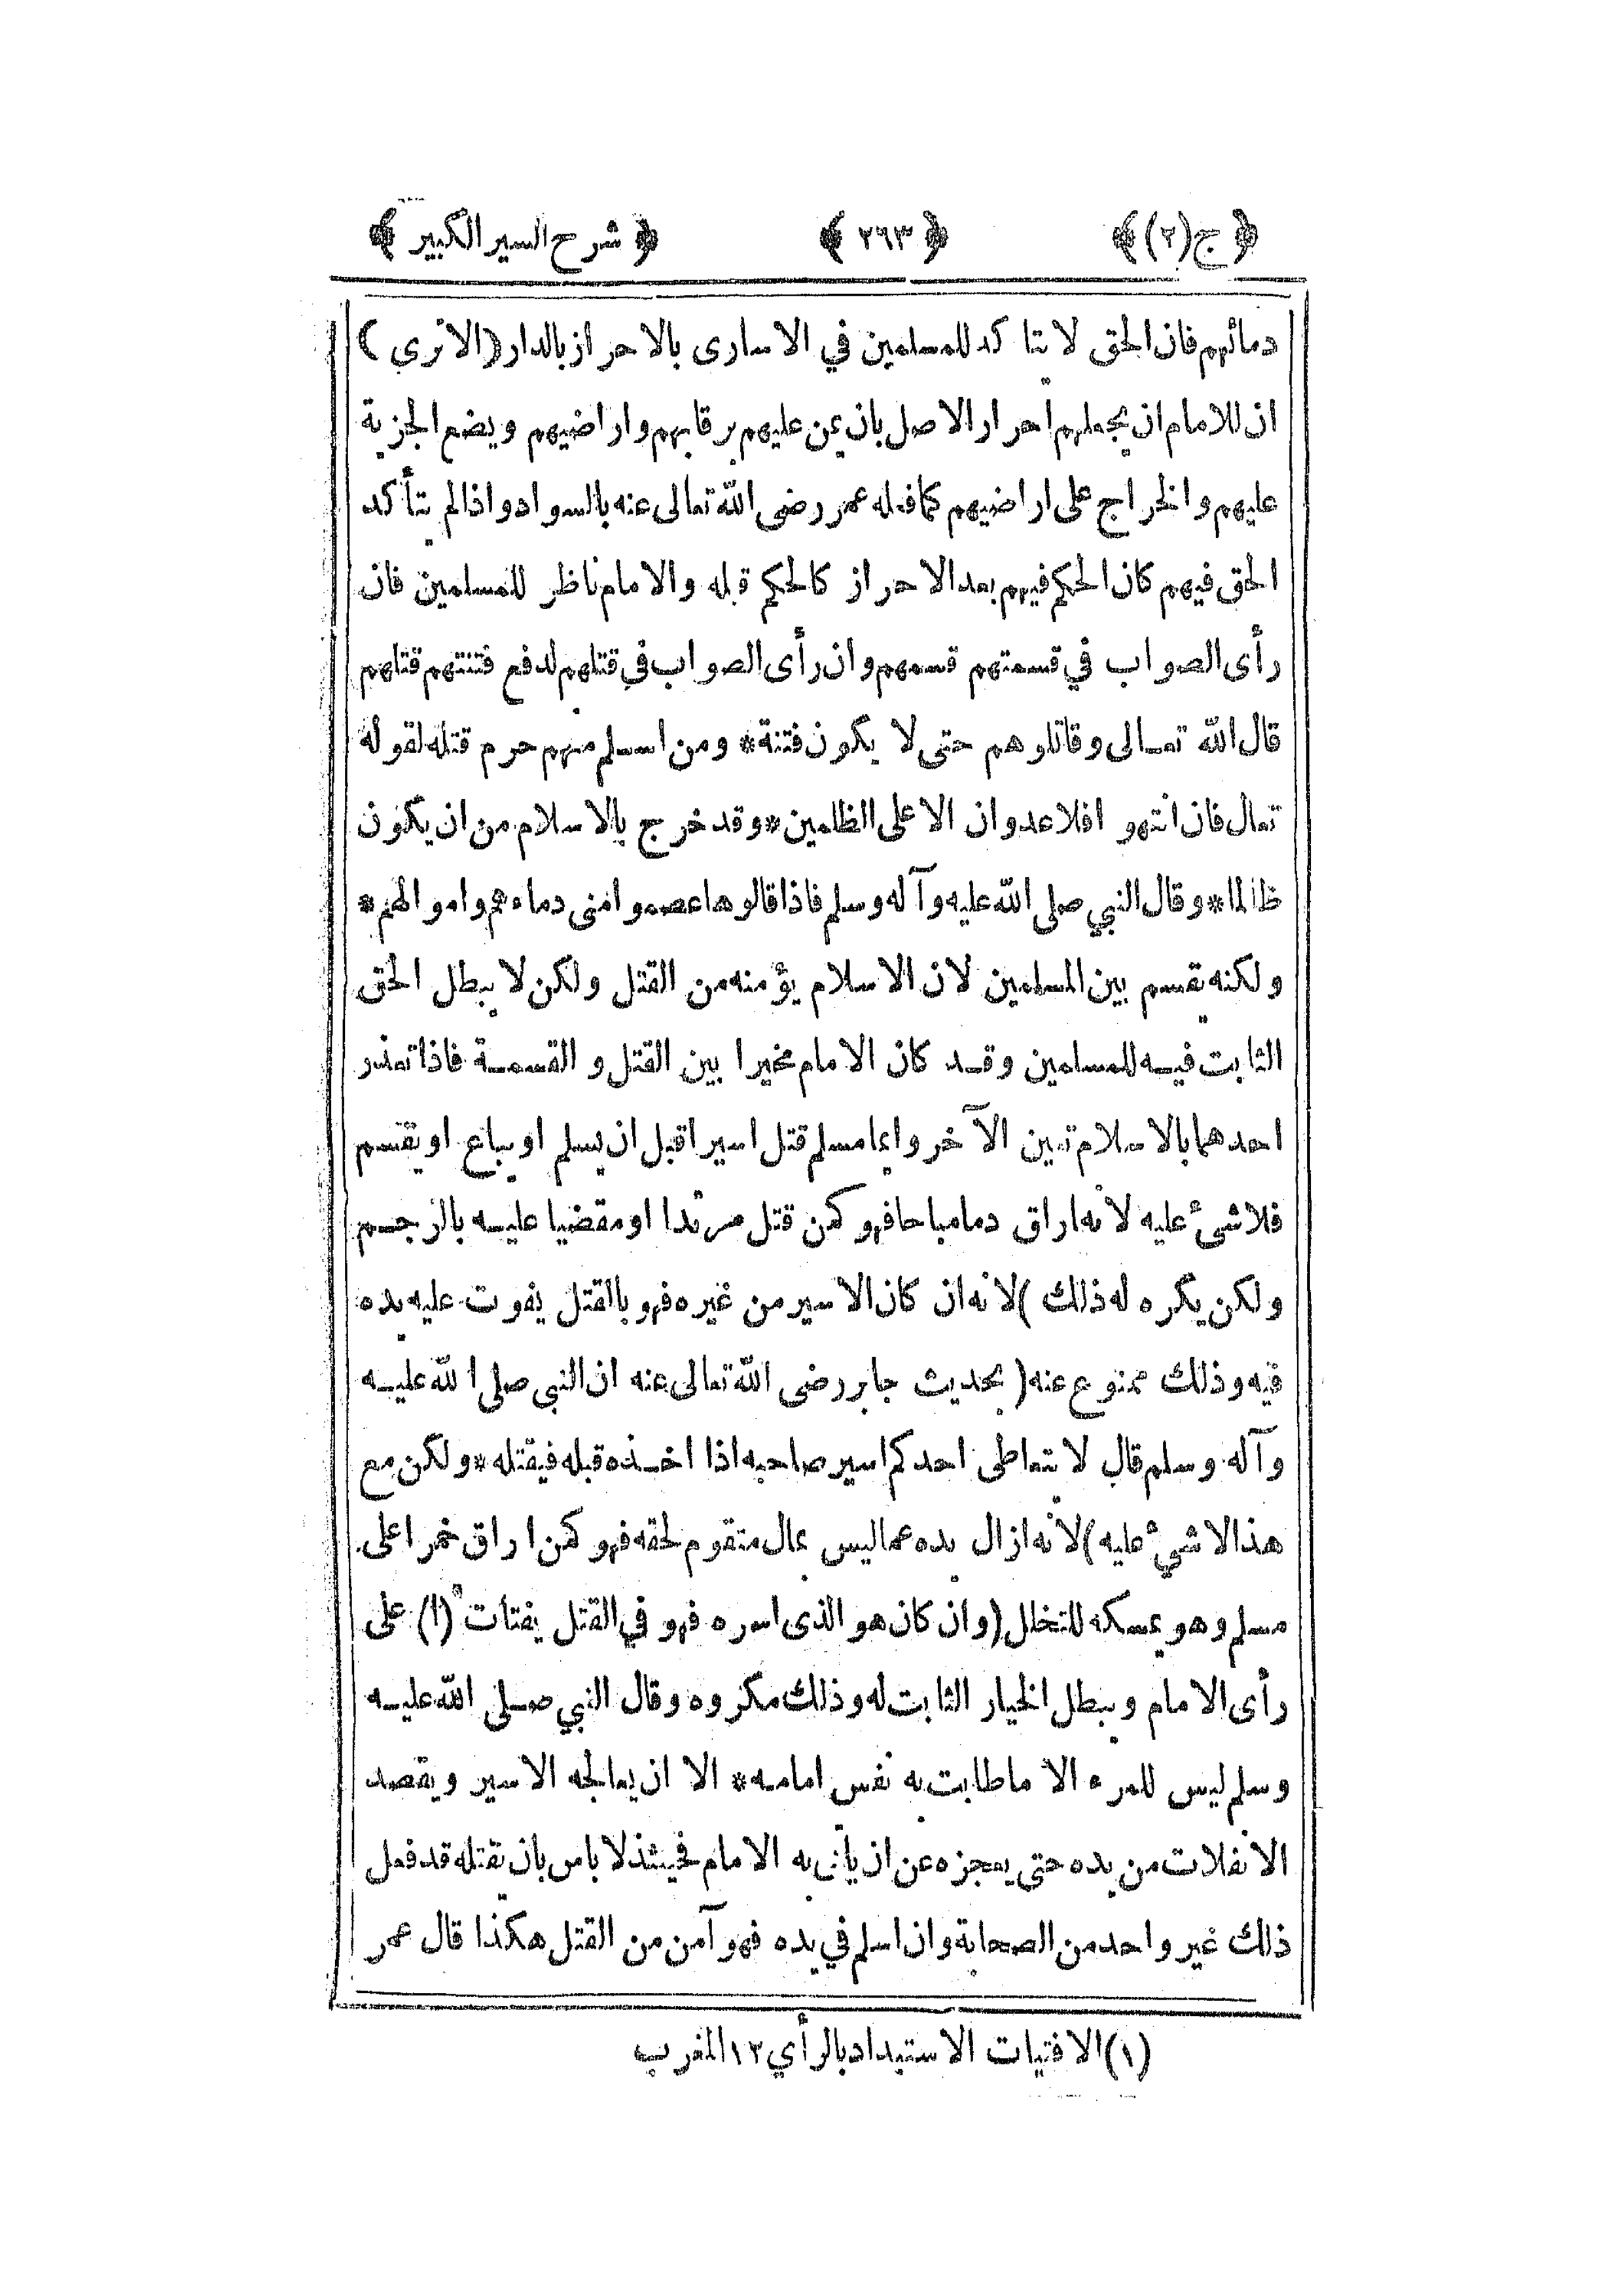 ﴿ ج (٢) ﴾ ﴿ ٢٩٣ ﴾ ﴿ شرح السير الكبير ﴾
دمائهم فان الحق لا يتاكد للمسلمين في الاسارى بالاحراز بالدار (الا ترى)
ان للامام ان يجعلهم احرار الاصل بان يمن عليهم برقابهم واراضيهم ويضع الجزية
عليهم والخراج على اراضيهم كما فعله عمر رضى الله تعالى عنه بالسواد واذا لم يتأكد
الحق فيهم كان الحكم فيهم بعد الاحراز كالحكم قبله والامام ناظر للمسلمين فان
رأى الصواب في قسمتهم قسمهم وان رأى الصواب في قتلهم لدفع فتنتهم قتلهم
قال الله تعالى وقاتلوهم حتى لا يكون فتنة * ومن اسلم منهم حرم قتله لقوله
تعالى فان انتهوا فلا عدوان الا على الظلمين * وقد خرج بالاسلام من ان يكون
ظالما * وقال النبي صلى الله عليه وآله وسلم فاذا قالوها عصموا منى دماءهم واموالهم *
ولكنه يقسم بين المسلمين لان الاسلام يؤمنه من القتل ولكن لا يبطل الحق
الثابت فيه للمسلمين وقد كان الامام مخيرا بين القتل و القسمة فاذا تعذر
احدهما بالاسلام تعين الآخر وايما مسلم قتل اسيرا قبل ان يسلم او يباع او يقسم
فلاشئ عليه لانه اراق دما مباحا فهو كمن قتل مرتدا او مقضيا عليه بالرجم
ولكن يكره له ذلك ) لانه ان كان الاسير من غيره فهو بالقتل يفوت عليه يده
فيه وذلك ممنوع عنه ( بحديث جابر رضى الله تعالى عنه ان النبي صلى الله عليه
وآله وسلم قال لا يتعاطى احدكم اسير صاحبه اذا اخذه قبله فيقتله * ولكن مع
هذا لا شئ عليه ) لانه ازال يده عما ليس بمال متقوم لحقه فهو كمن اراق خمرا على
مسلم وهو يمسكه للتخلل (وان كان هو الذى اسره فهو في القتل يفتات (١) على
رأى الامام ويبطل الخيار الثابت له وذلك مكروه وقال النبي صلى الله عليه
وسلم ليس للمرء الا ما طابت به نفس امامه * الا ان يعالجه الاسير ويقصد
الانفلات من يده حتى يعجزه عن ان يأتى به الامام فحينئذ لا باس بان يقتله قد فعل
ذلك غير واحد من الصحابة وان اسلم في يده فهو آمن من القتل هكذا قال عمر
(١) الافتيات الاستبداد بالرأي ١٢ المغرب